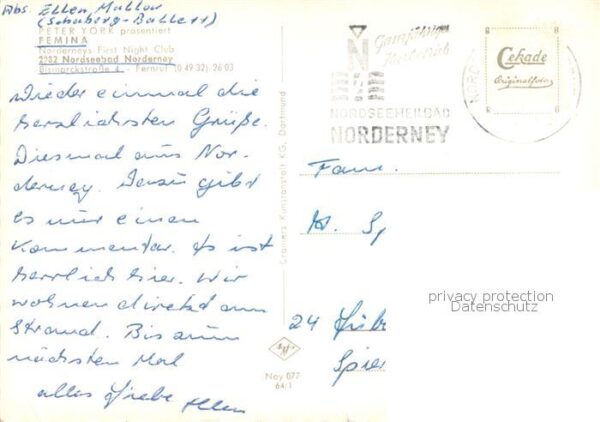 Abs. Ellen Mallow
(Schuberg-Ballett)
PETER YORK präsentiert
FEMINA
Norderneys First Night Club
2982 Nordseebad Norderney
Bismarckstraße 4 - Fernruf (0 49 32) 26 03
Wieder einmal die
herzlichsten Grüße.
Diesmal aus Nor-
derney. Dazu gibt
es nur einen
Kommentar. Es ist
herrlich hier. Wir
wohnen direkt am
Strand. Bis zum
nächsten Mal
alles Liebe Ellen
Cramers Kunstanstalt KG, Dortmund
Ney 077
64:1
N
Ganzjähriger
Kurbetrieb
NORDSEEHEILBAD
NORDERNEY
NORD
Cekade
Originalfoto
Fam.
24
privacy protection
Datenschutz